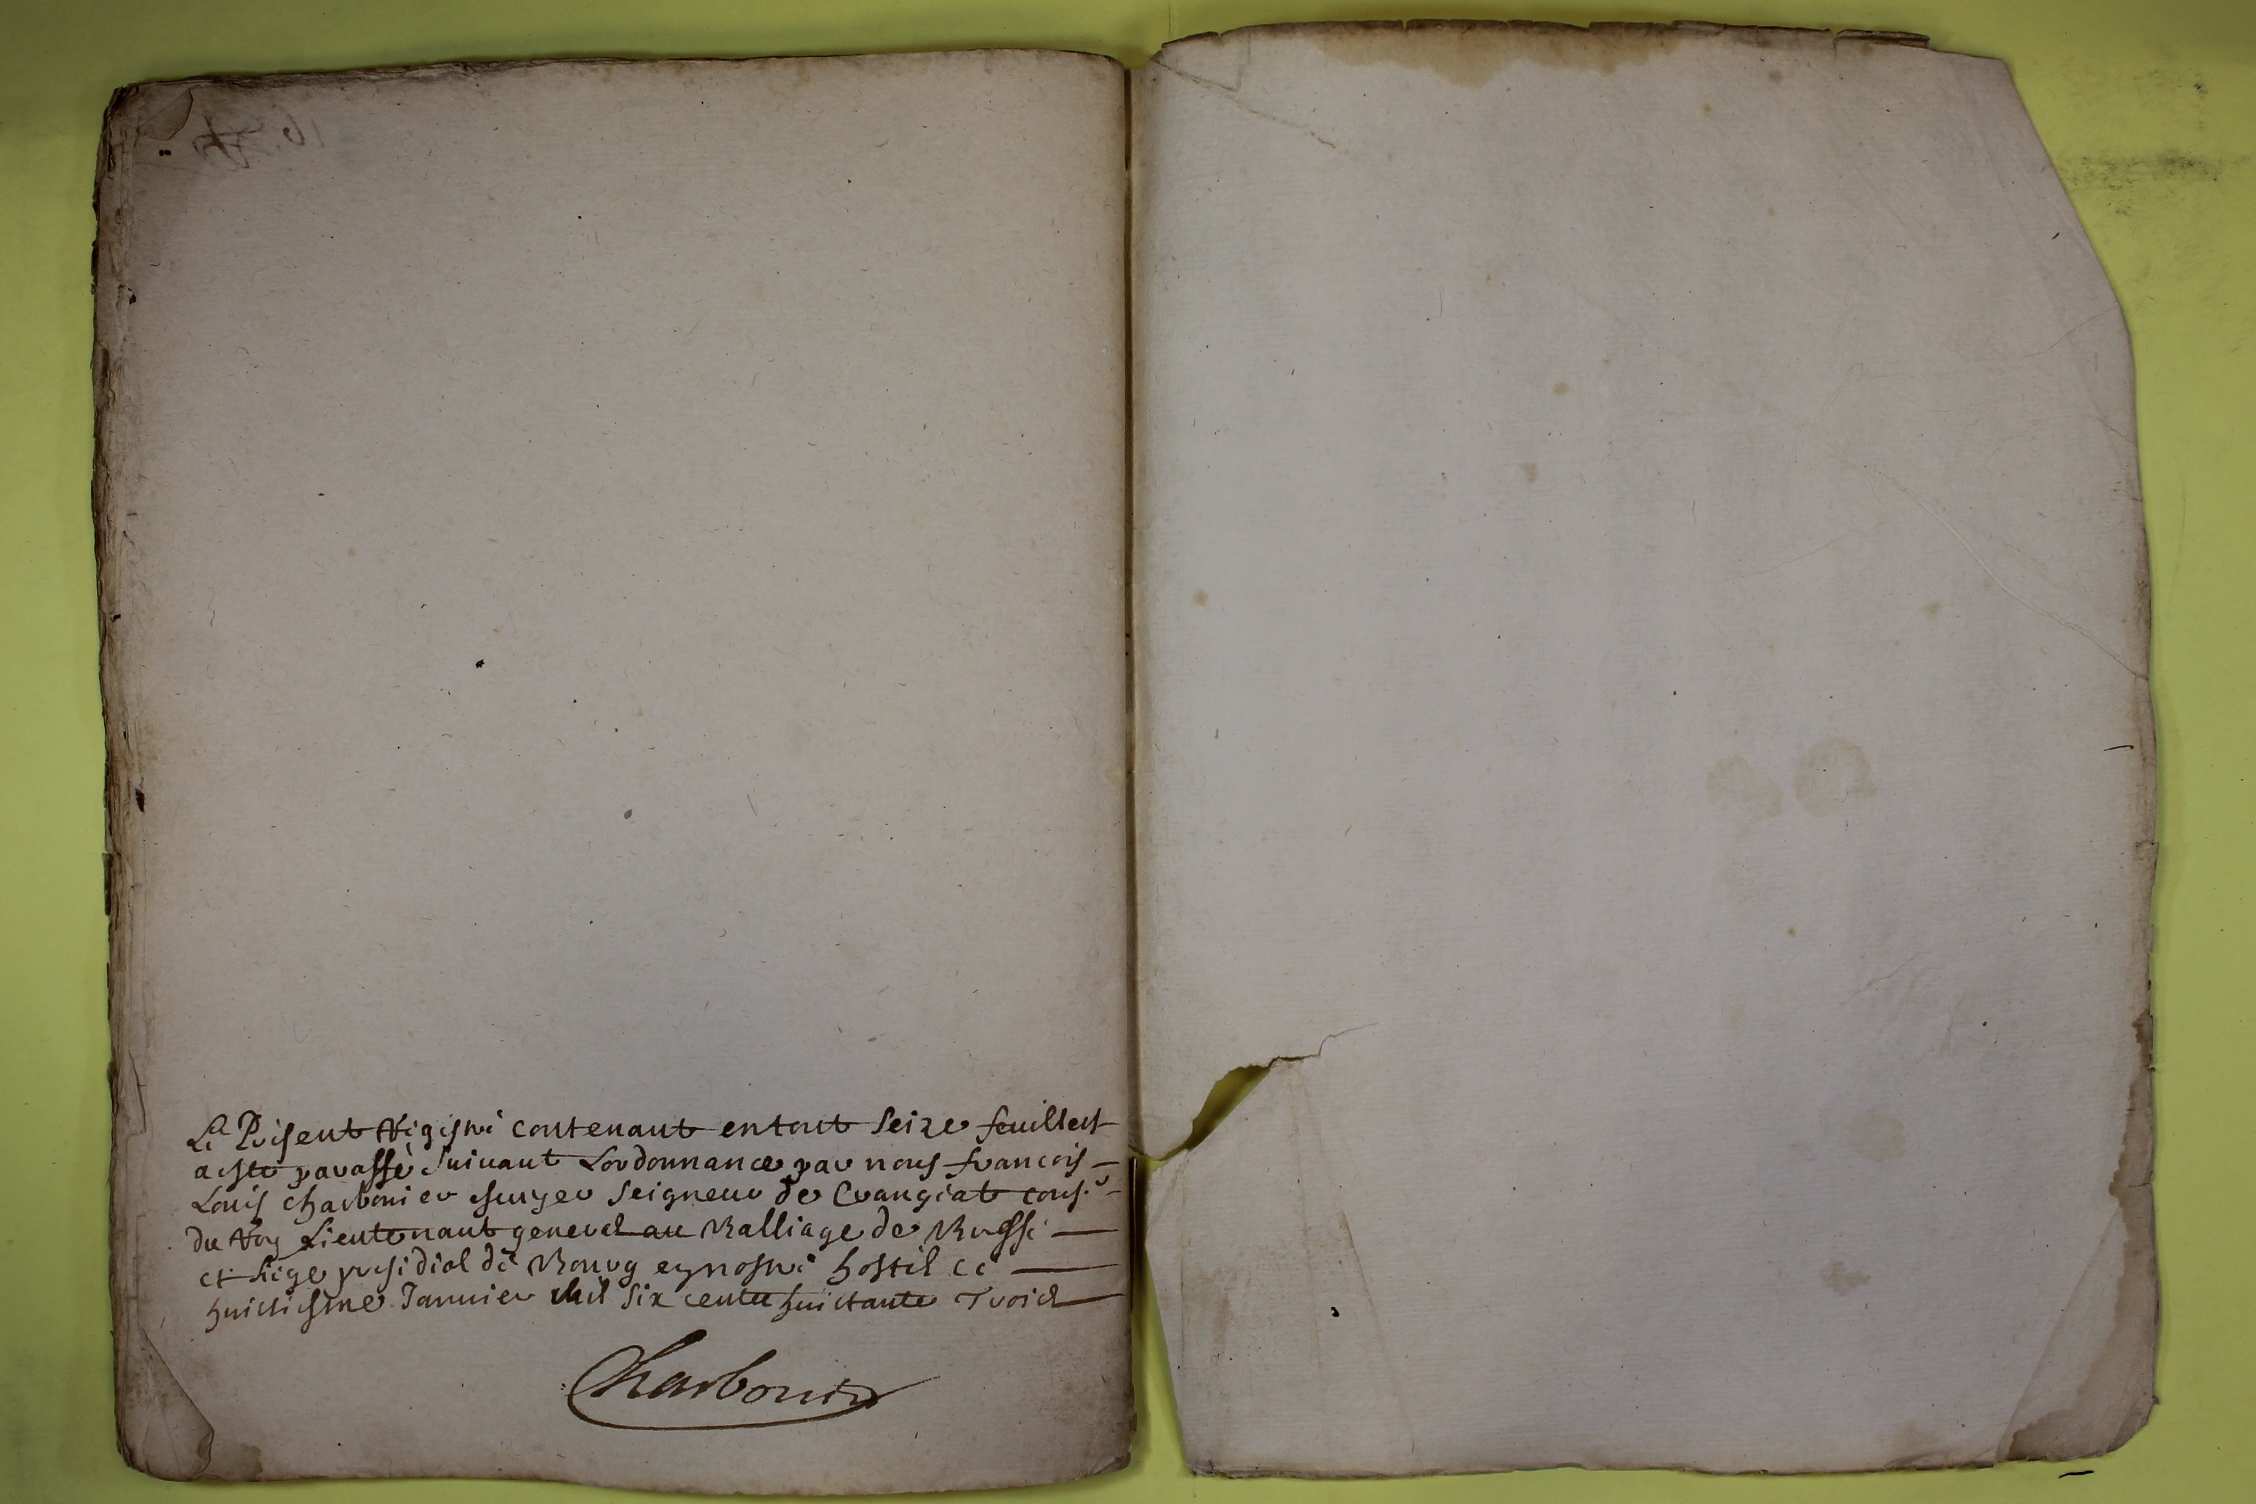 Le Present Registre contenant en tout seize feuillets
a esté paraffé suivant Lordonnance par nous francois
Louis Charbonier escuyer seigneur de Crangeat cons.r
du Roy Lieutenant general au Balliage de Bresse
et siege presidial de Bourg en nostre hostel ce
huictiesme Januier mil six cents huictante Troict
Charbonier